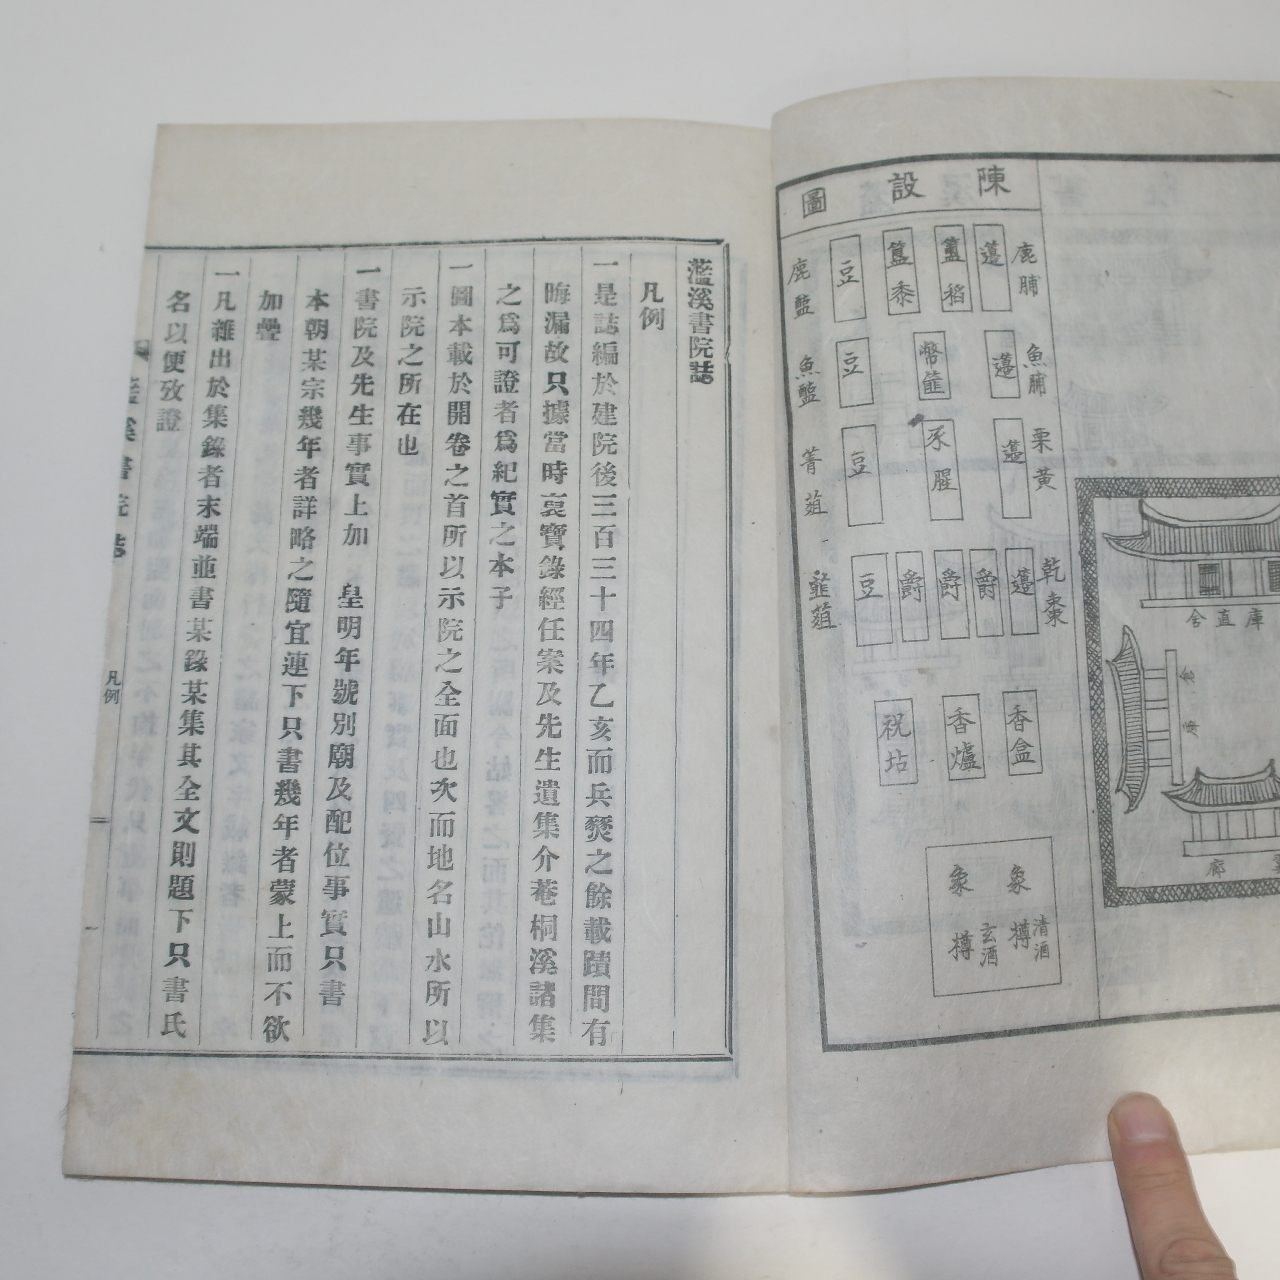 陳設圖
鹿脯
籩
簠稻
簋黍
豆
鹿醢
魚脯
籩
幣篚
豆
魚醢
栗黃
籩
豕腥
豆
菁葅
乾棗
籩
爵
爵
爵
豆
韮葅
香盒
香爐
祝坫
象樽
清酒
象樽
玄酒
庫直舍
廊
灆溪書院誌
凡例
一是誌編於建院後三百三十四年乙亥而兵燹之餘載蹟間有
晦漏故只據當時裒寶錄經任案及先生遺集介菴桐溪諸集
之爲可證者爲紀實之本子
一圖本載於開卷之首所以示院之全面也次而地名山水所以
示院之所在也
一書院及先生事實上加 皇明年號別廟及配位事實只書
本朝某宗幾年者詳略之隨宜連下只書幾年者蒙上而不欲
加疊
一凡雜出於集錄者末端並書某錄某集其全文則題下只書氏
名以便攷證
灆溪書院誌
凡例
一